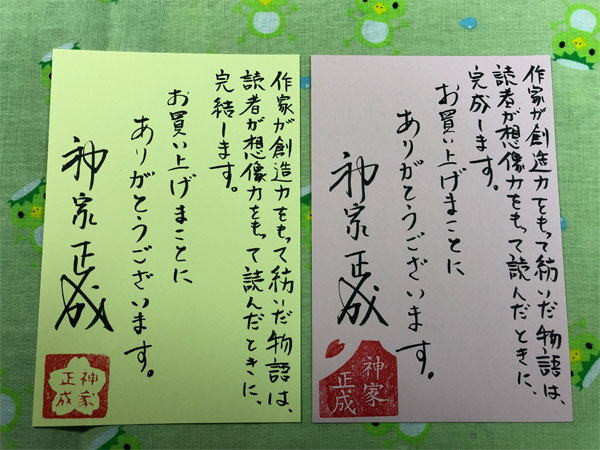 作家が創造力をもって紡いだ物語は、
読者が想像力をもって読んだときに、
完結します。
お買い上げまことに
ありがとうございます。
神家正成
神家
正成
作家が創造力をもって紡いだ物語は、
読者が想像力をもって読んだときに、
完成します。
お買い上げまことに
ありがとうございます。
神家正成
神家
正成